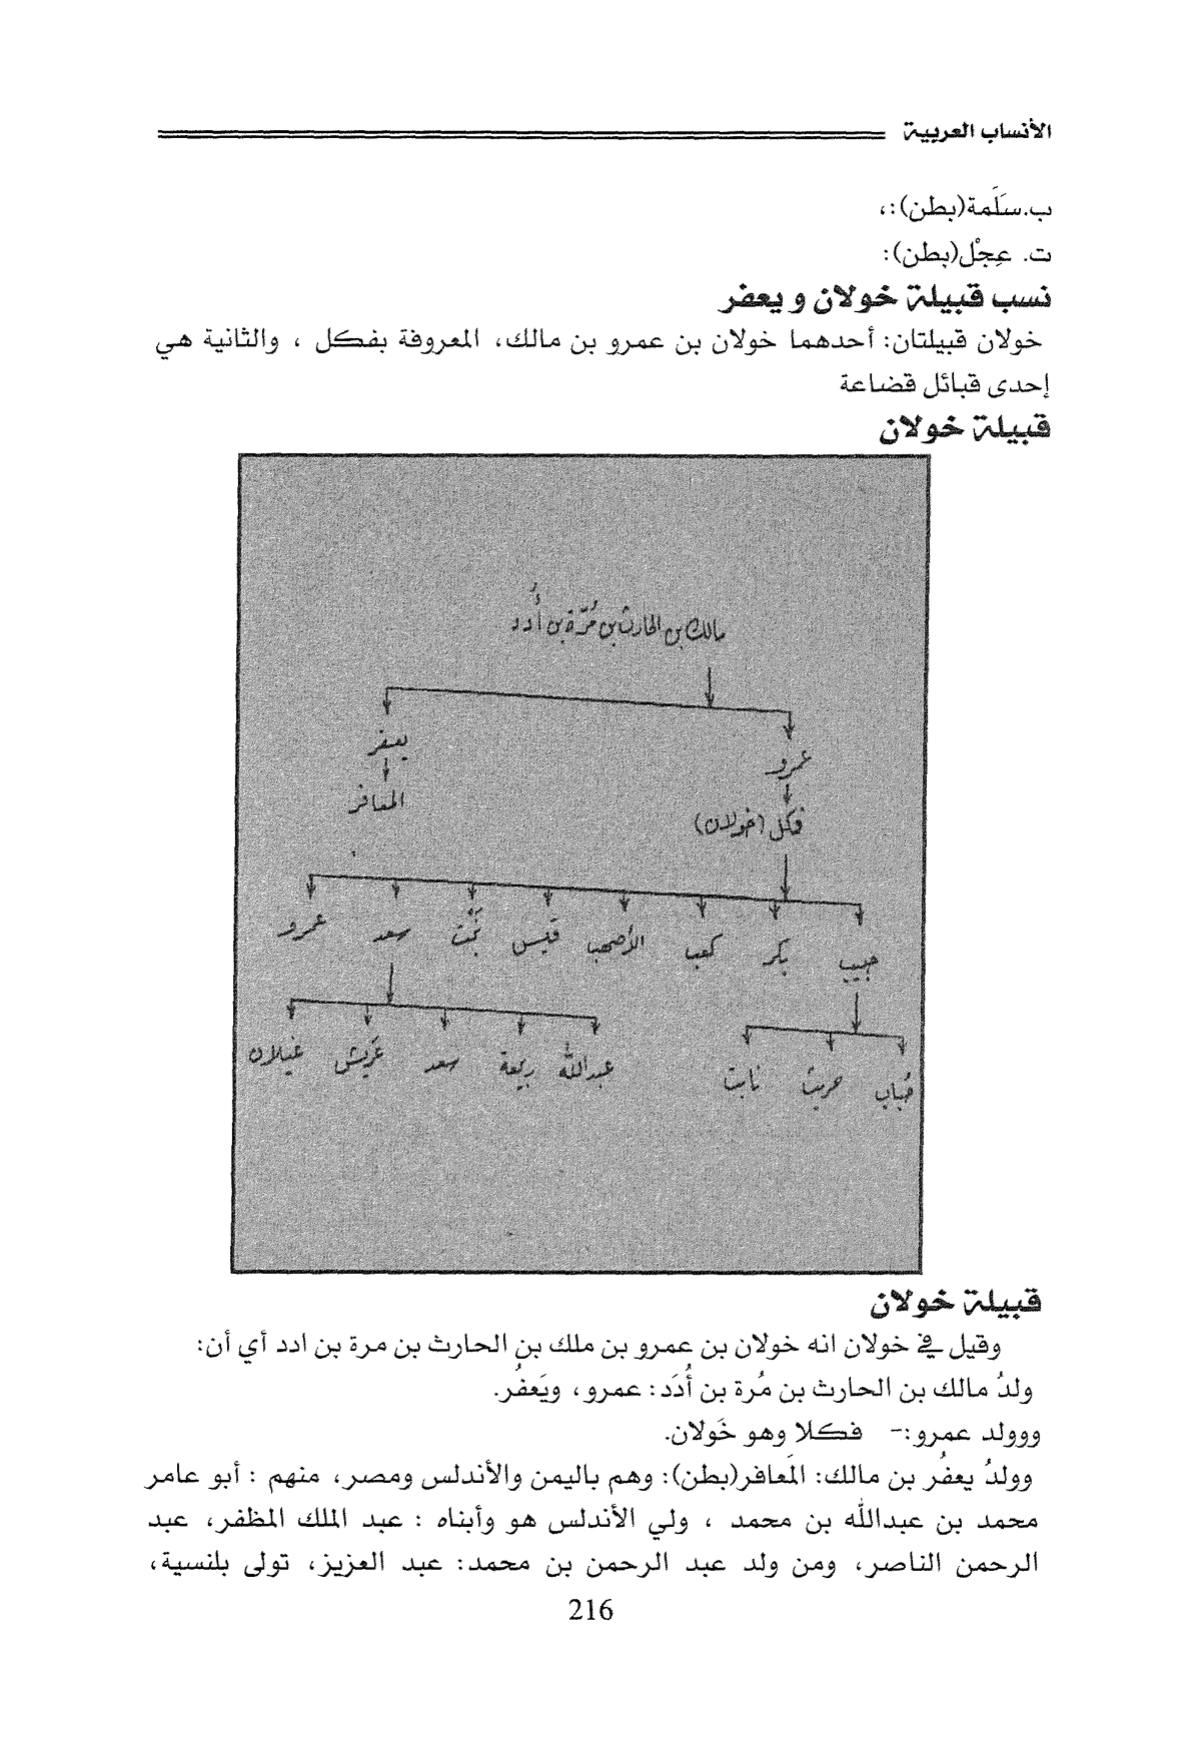 الأنساب العربية
ب.سَلَمة(بطن):،
ت. عِجْل(بطن):
نسب قبيلة خولان و يعفر
خولان قبيلتان: أحدهما خولان بن عمرو بن مالك، المعروفة بفكل ، والثانية هي
إحدى قبائل قضاعة
قبيلة خولان
مالك بن الحارث بن مُرّة بن أُدد
عمرو يعفر
فكل (خولان) المعافر
حبيب بكر كعب الأصهب قيس نَبْت سعد عمرو
حُباب حريث نابت عبدالله ربيعة سعد عَريش غيلان
قبيلة خولان
وقيل في خولان انه خولان بن عمرو بن ملك بن الحارث بن مرة بن ادد أي أن:
ولدُ مالك بن الحارث بن مُرة بن أُدَد: عمرو، ويَعفُر.
ووولد عمرو:- فكلا وهو خَولان.
وولدُ يعفُر بن مالك: المَعافر(بطن): وهم باليمن والأندلس ومصر، منهم : أبو عامر
محمد بن عبدالله بن محمد ، ولي الأندلس هو وأبناه : عبد الملك المظفر، عبد
الرحمن الناصر، ومن ولد عبد الرحمن بن محمد: عبد العزيز، تولى بلنسية،
216